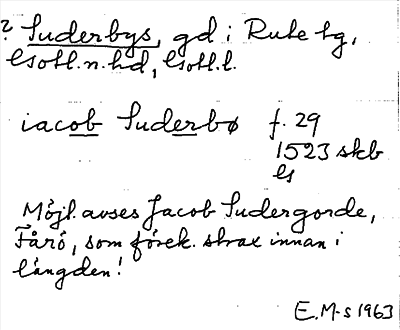 ? Suderbys, gd i Rute tg,
Gotl. n. hd, Gotl. l.
iacob Suderbø f. 29
1523 skb
Gs
Möjl. avses Jacob Sudergorde,
Fårö, som förek. strax innan i
längden!
E. M-s 1963